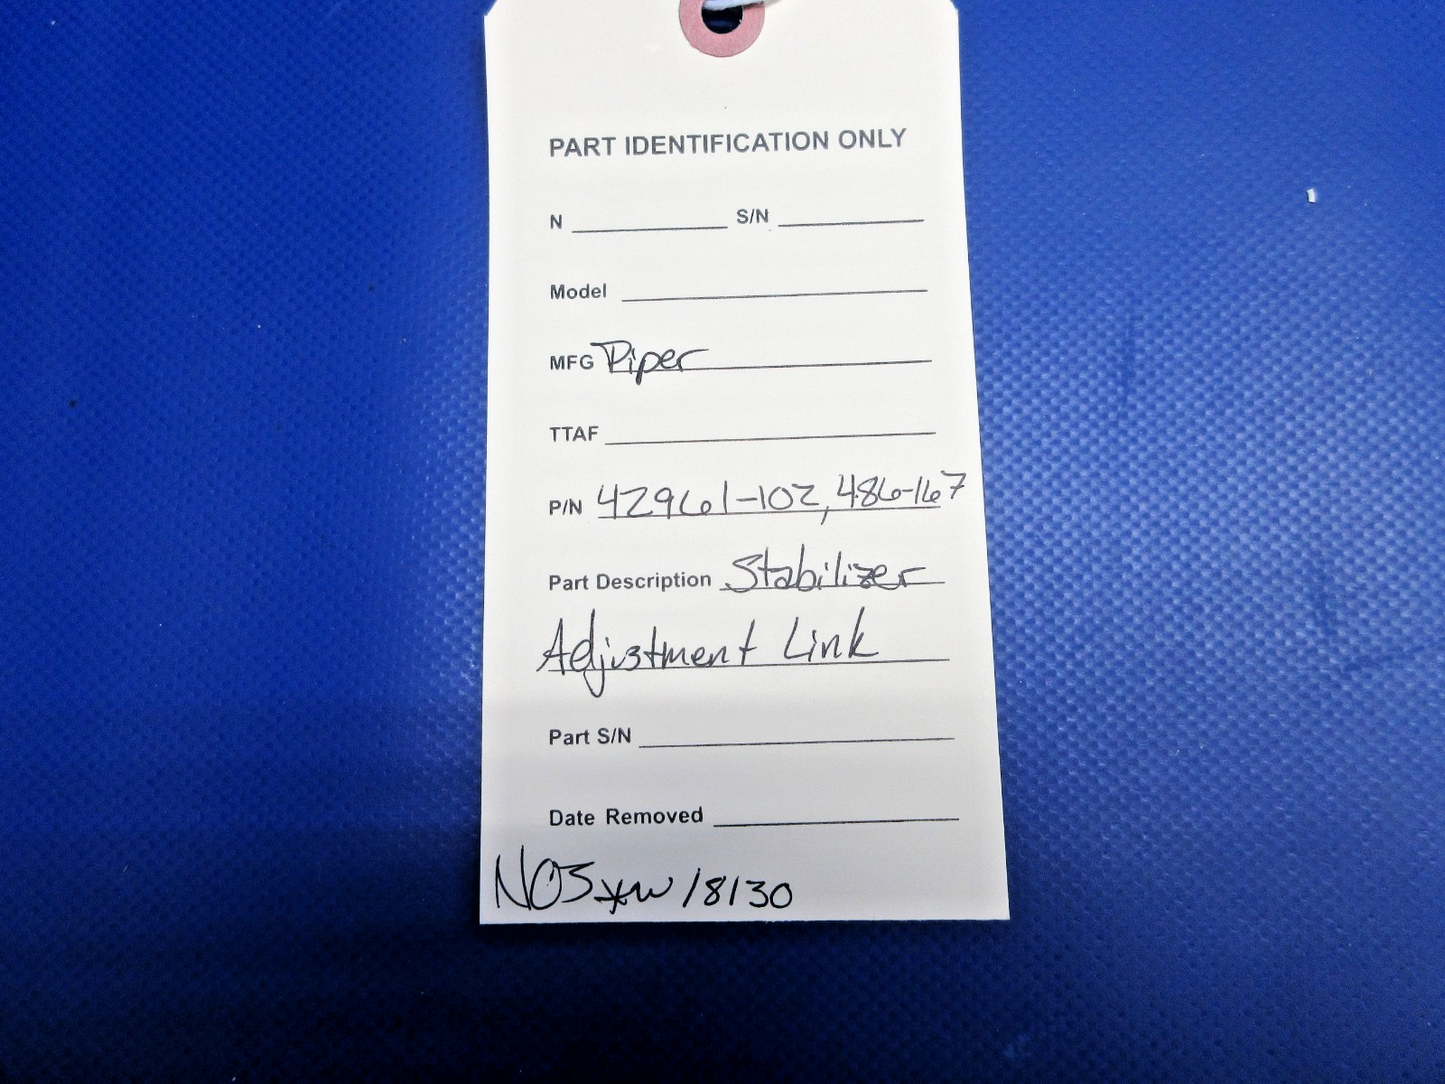 PART IDENTIFICATION ONLY
N S/N
Model
MFG Piper
TTAF
P/N 42961-102, 486-167
Part Description Stabilizer
Adjustment Link
Part S/N
Date Removed
NOS *w/8130